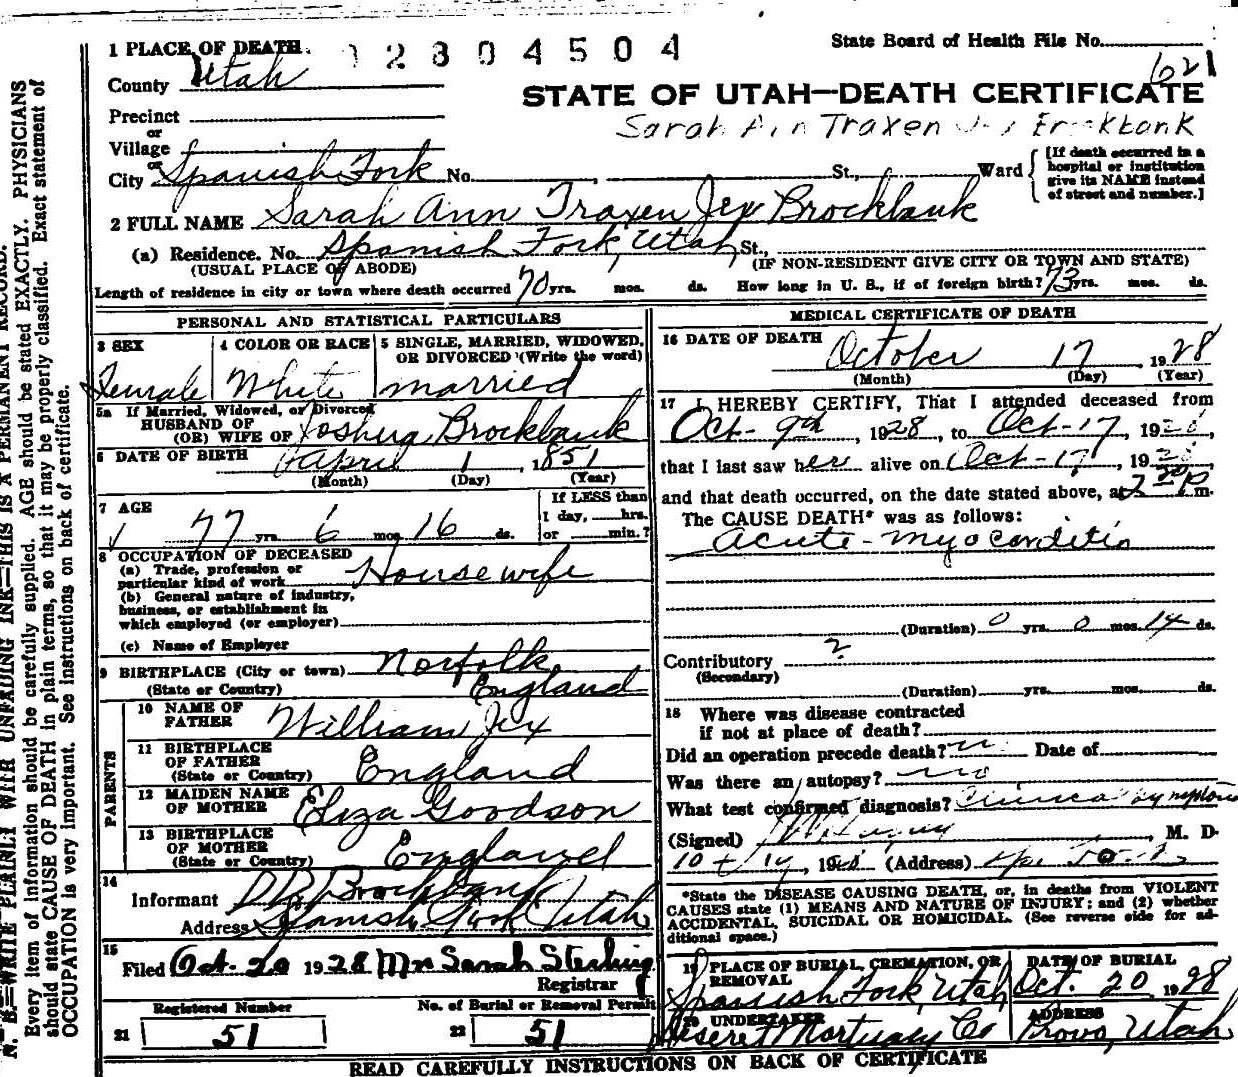 1 PLACE OF DEATH. 12804504 State Board of Health File No.
County Utah 621
STATE OF UTAH—DEATH CERTIFICATE
Precinct
Sarah Ann Traxen Jex Brockbank
or
Village
or
City Spanish Fork No. , St., Ward
[If death occurred in a hospital or institution give its NAME instead of street and number.]
2 FULL NAME Sarah Ann Traxen Jex Brockbank
(a) Residence. No. Spanish Fork, Utah, St.,
(USUAL PLACE OF ABODE) (IF NON-RESIDENT GIVE CITY OR TOWN AND STATE)
Length of residence in city or town where death occurred 70 yrs. mos. ds. How long in U. S., if of foreign birth? 73 yrs. mos. ds.
PERSONAL AND STATISTICAL PARTICULARS
3 SEX 4 COLOR OR RACE 5 SINGLE, MARRIED, WIDOWED,
OR DIVORCED (Write the word)
Female White married
5a If Married, Widowed, or Divorced
HUSBAND OF
(OR) WIFE OF Joshua Brockbank
6 DATE OF BIRTH April 1, 1851
(Month) (Day) (Year)
7 AGE If LESS than
1 day, hrs.
77 yrs. 6 mos. 16 ds. or min.?
8 OCCUPATION OF DECEASED
(a) Trade, profession or
particular kind of work Housewife
(b) General nature of industry,
business, or establishment in
which employed (or employer)
(c) Name of Employer
9 BIRTHPLACE (City or town) Norfolk
(State or Country) England
PARENTS
10 NAME OF
FATHER William Jex
11 BIRTHPLACE
OF FATHER
(State or Country) England
12 MAIDEN NAME
OF MOTHER Eliza Goodson
13 BIRTHPLACE
OF MOTHER
(State or Country) England
14
Informant Brockbank
Address Spanish Fork Utah
15
Filed Oct. 20 1928 Mrs Sarah Sterling
Registrar
Registered Number No. of Burial or Removal Permit
21 51 22 51
MEDICAL CERTIFICATE OF DEATH
16 DATE OF DEATH October 17 1928
(Month) (Day) (Year)
17 I HEREBY CERTIFY, That I attended deceased from
Oct-9th, 1928, to Oct-17, 1928,
that I last saw her alive on Oct-17, 1928
and that death occurred, on the date stated above, at 2 P m.
The CAUSE DEATH* was as follows:
acute-myocarditis
(Duration) 0 yrs. 0 mos. 14 ds.
Contributory ?
(Secondary)
(Duration) yrs. mos. ds.
18 Where was disease contracted
if not at place of death?
Did an operation precede death? Date of
Was there an autopsy? no
What test confirmed diagnosis? Clinical symptoms
(Signed) , M. D.
10 (Address)
*State the DISEASE CAUSING DEATH, or, in deaths from VIOLENT
CAUSES state (1) MEANS AND NATURE OF INJURY; and (2) whether
ACCIDENTAL, SUICIDAL OR HOMICIDAL. (See reverse side for ad-
ditional space.)
19 PLACE OF BURIAL, CREMATION, OR DATE OF BURIAL
REMOVAL
Spanish Fork, Utah Oct. 20 1928
20 UNDERTAKER ADDRESS
Deseret Mortuary Co Provo, Utah
READ CAREFULLY INSTRUCTIONS ON BACK OF CERTIFICATE
N. B.—WRITE PLAINLY WITH UNFADING INK—THIS IS A PERMANENT RECORD.
Every item of information should be carefully supplied. AGE should be stated EXACTLY. PHYSICIANS
should state CAUSE OF DEATH in plain terms, so that it may be properly classified. Exact statement of
OCCUPATION is very important. See instructions on back of certificate.